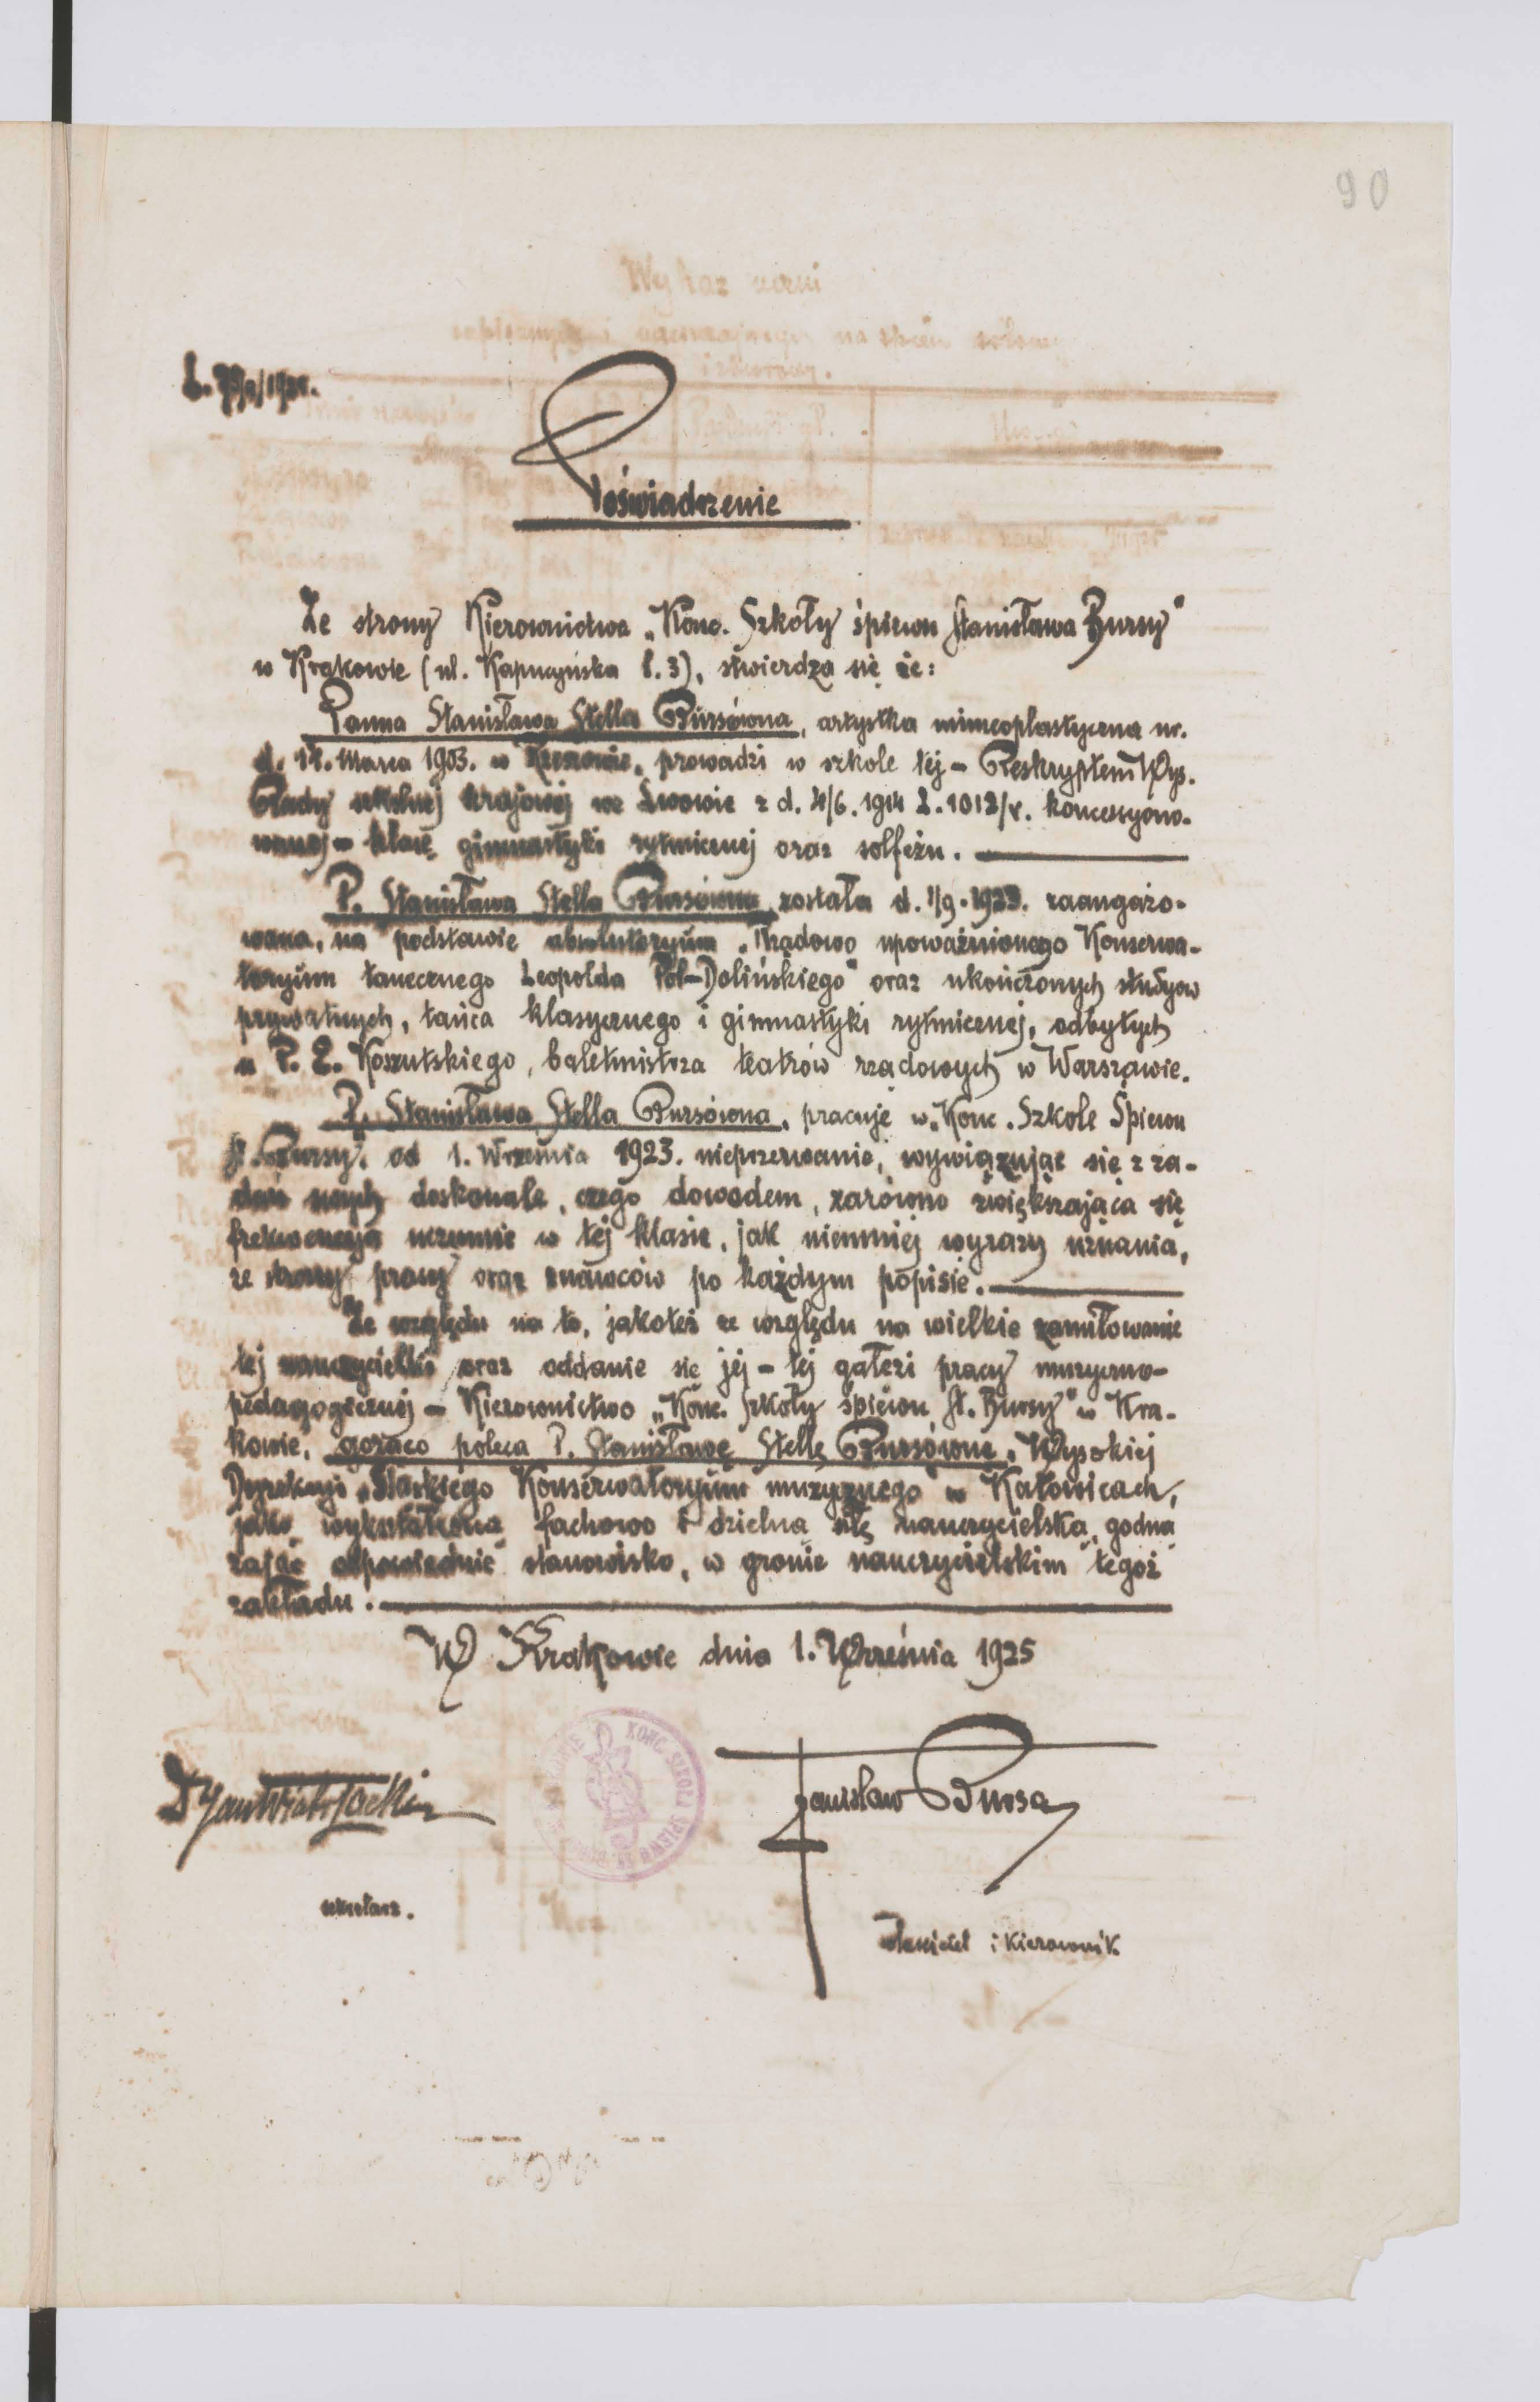 90
Poświadczenie
Ze strony Kierownictwa „Konc. Szkoły śpiewu Stanisława Bursy"
w Krakowie (ul. Kapucyńska l. 3), stwierdza się że:
Panna Stanisława Stella Bursówna, artystka mimeoplastyczna ur.
d. 14. Marca 1903. w prowadzi w szkole tej – Reskryptem Wys.
Rady szkolnej krajowej we Lwowie z d. 4/6. 1914 L. 1012/V. koncesyono-
wanej – klasę gimnastyki rytmicznej oraz solfeżu.
P. Stanisława Stella Bursówna została d. 1/9. 1923. zaangażo-
wana, na podstawie absolutoryum „Rządowo upoważnionego Konserwa-
toryum tanecznego Leopolda Pol-Dolińskiego" oraz ukończonych studyow
prywatnych, tańca klasycznego i gimnastyki rytmicznej, odbytych
u P. E. Koszutskiego, baletmistrza teatrów rządowych w Warszawie.
P. Stanisława Stella Bursówna, pracuje w „Konc. Szkole Śpiewu
St. Bursy". od 1. Września 1923. nieprzerwanie, wywiązując się z za-
dań swych doskonale, czego dowodem, zarówno zwiększająca się
frekwencya uczennic w tej klasie, jak niemniej wyrazy uznania,
ze strony prasy oraz znawców po każdym popisie.
Ze względu na to, jakoteż ze względu na wielkie zamiłowanie
tej nauczycielki oraz oddanie się jej – tej gałęzi pracy muzyczno-
pedagogicznej – Kierownictwo „Konc. Szkoły śpiewu St. Bursy" w Kra-
kowie, gorąco poleca P. Stanisławę Stellę Bursównę, Wysokiej
Dyrekcyi „Śląskiego Konserwatoryum muzycznego" w Katowicach,
jako wykształconą fachowo i dzielną siłę nauczycielską, godną
zająć odpowiednie stanowisko, w gronie nauczycielskim tegoż
zakładu.
W Krakowie dnia 1. Września 1925
KONC. SZKOŁA ŚPIEWU
Stanisław Bursa
sekretarz.
właściciel i kierownik